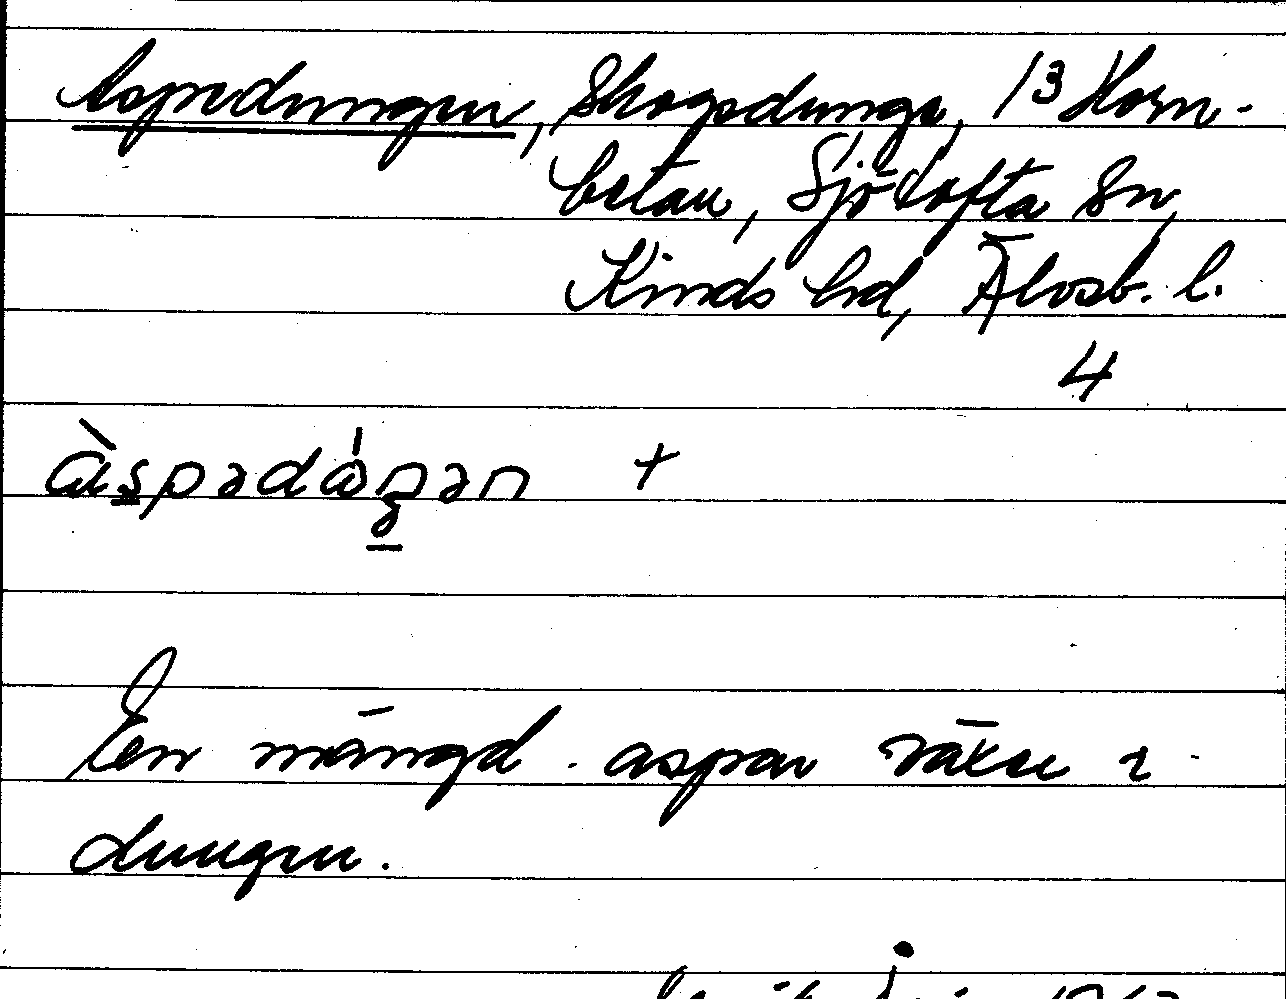 Aspedungen, Skogsdunge, 13 Horn-
betan, Sjötofta Sn,
Kinds hd, Älvsb. l.
4
àspədáŋən +
En mängd aspar växer i
dungen.